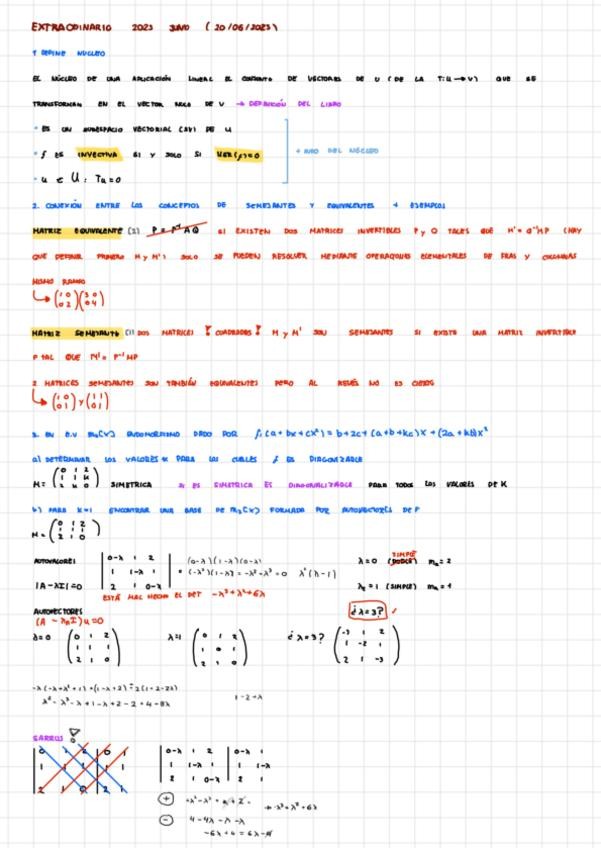 EXTRAORDINARIO 2023 JUNIO (20/06/2023)
1 DEFINE NUCLEO
EL NÚCLEO DE UNA APLICACIÓN LINEAL EL CONJUNTO DE VECTORES DE U (DE LA T:U→V) QUE SE
TRANSFORMAN EN EL VECTOR NULO DE V → DEFINICIÓN DEL LIBRO
• ES UN SUBESPACIO VECTORIAL (SV) DE U
• f ES INYECTIVA SI Y SOLO SI KER(f)=0
+ INFO DEL NÚCLEO
• u ∈ U : Tu=0
2. CONEXIÓN ENTRE LOS CONCEPTOS DE SEMEJANTES Y EQUIVALENTES + EJEMPLOS
MATRIZ EQUIVALENTE (2) SI EXISTEN DOS MATRICES INVERTIBLES P y Q TALES QUE M'= Q⁻¹MP (HAY
QUE DEFINIR PRIMERO M y M') SOLO SE PUEDEN RESOLVER MEDIANTE OPERACIONES ELEMENTALES DE FILAS Y COLUMNAS
MISMO RANGO
(1 0 0 2)(3 0 0 4)
MATRIZ SEMEJANTE (1) DOS MATRICES ! CUADRADAS ! M y M' SON SEMEJANTES SI EXISTE UNA MATRIZ INVERTIBLE
P TAL QUE M'= P⁻¹MP
2 MATRICES SEMEJANTES SON TAMBIÉN EQUIVALENTES PERO AL REVÉS NO ES CIERTO
(1 0 0 1) y (1 1 0 1)
3. EN E.V ENDOMORFISMO DADO POR f(a + bx + cx²) = b+2c + (a+b+kc)x + (2a + kb)x²
a) DETERMINAR LOS VALORES K PARA LOS CUALES f ES DIAGONIZABLE
M= (0 1 2 1 1 k 2 k 0) SIMETRICA SI ES SIMETRICA ES DIAGONALIZABLE PARA TODOS LOS VALORES DE K
b) PARA K=1 ENCONTRAR UNA BASE DE FORMADA POR AUTOVECTORES DE F
M= (0 1 2 1 1 1 2 1 0)
AUTOVALORES |0-λ 1 2 = (0-λ)(1-λ)(0-λ) λ=0 SIMPLE (DOBLE) m₀=2
1 1-λ 1 = (-λ²)(1-λ)= -λ²-λ³=0 λ²(λ-1)
|A-λI|=0 2 1 0-λ| λ₂=1 (SIMPLE) m₀=1
ESTÁ MAL HECHO EL DET -λ³+λ²+6λ
AUTOVECTORES ¿λ=3? ✓
(A - λI)u=0
λ=0 (0 1 2 1 1 1 2 1 0) λ=1 ¿λ=3? (-3 1 2 1 -2 1 2 1 -3)
1-2+λ
SARRUS !
|0-λ 1 2| 0-λ 1
1 1-λ 1 1 1-λ
2 1 0-λ| 2 1
(+) → -λ³+λ²+6λ
(-) 4-4λ-λ-λ
-6λ+4 = 6λ-4